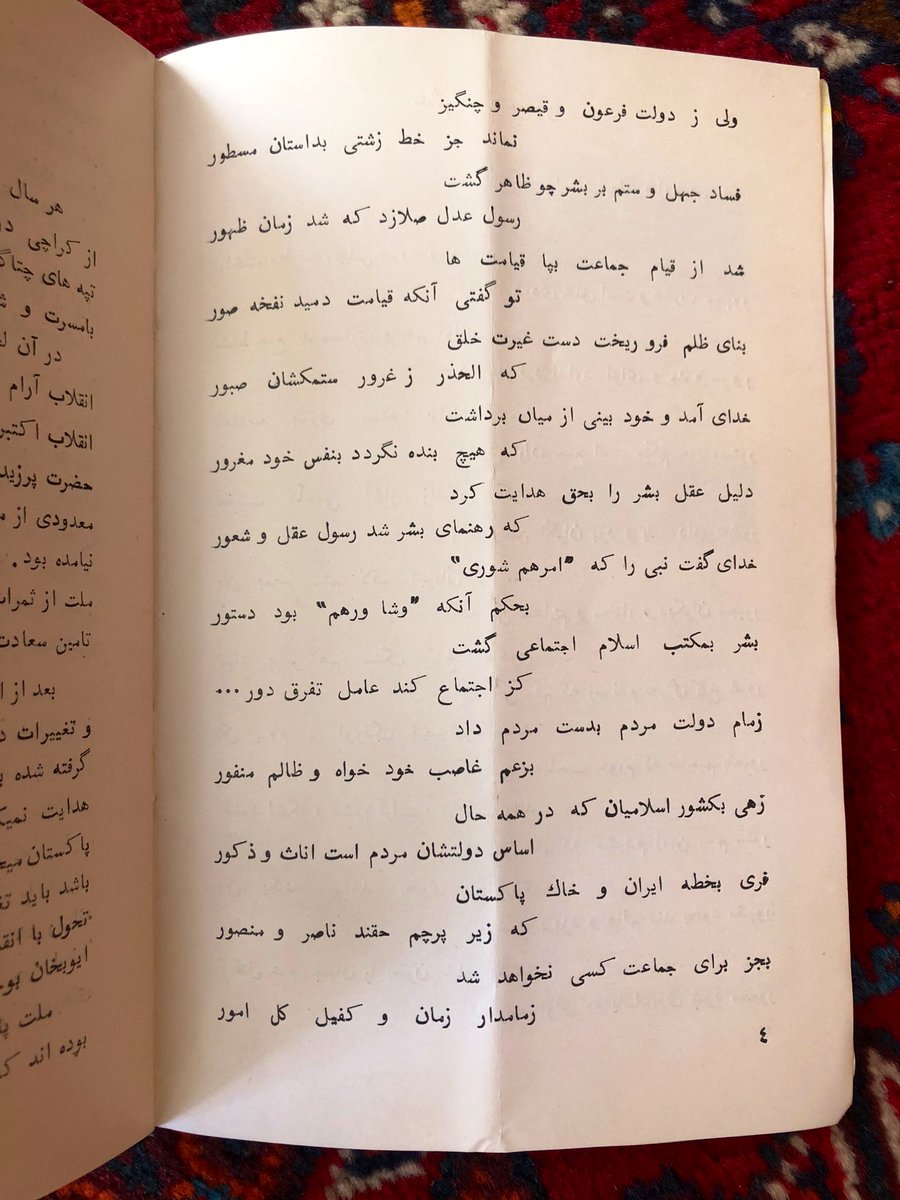 ولی ز دولت فرعون و قیصر و چنگیز
نماند جز خط زشتی بداستان مسطور
فساد جهل و ستم بر بشر چو ظاهر گشت
رسول عدل صلازد که شد زمان ظهور
شد از قیام جماعت بپا قیامت ها
تو گفتی آنکه قیامت دمید نفخه صور
بنای ظلم فرو ریخت دست غیرت خلق
که الحذر ز غرور ستمکشان صبور
خدای آمد و خود بینی از میان برداشت
که هیچ بنده نگردد بنفس خود مغرور
دلیل عقل بشر را بحق هدایت کرد
که رهنمای بشر شد رسول عقل و شعور
خدای گفت نبی را که "امرهم شوری"
بحکم آنکه "وشا ورهم" بود دستور
بشر بمکتب اسلام اجتماعی گشت
کز اجتماع کند عامل تفرق دور...
زمام دولت مردم بدست مردم داد
بزعم غاصب خود خواه و ظالم منفور
زهی بکشور اسلامیان که در همه حال
اساس دولتشان مردم است اناث و ذکور
فری بخطه ایران و خاك پاکستان
که زیر پرچم حقند ناصر و منصور
بجز برای جماعت کسی نخواهد شد
زمامدار زمان و کفیل کل امور
٤
هر سال
از کراچی
تپه های
بامسرت و
در آن
انقلاب آرام
انقلاب اکتبر
حضرت
معدودی از
نیامده بود.
ملت از ثمرات
تامین سعادت
بعد از
و تغییرات
گرفته شده
هدایت
پاکستان
باشد باید
تحول با
ایوبخان
ملت
بوده اند